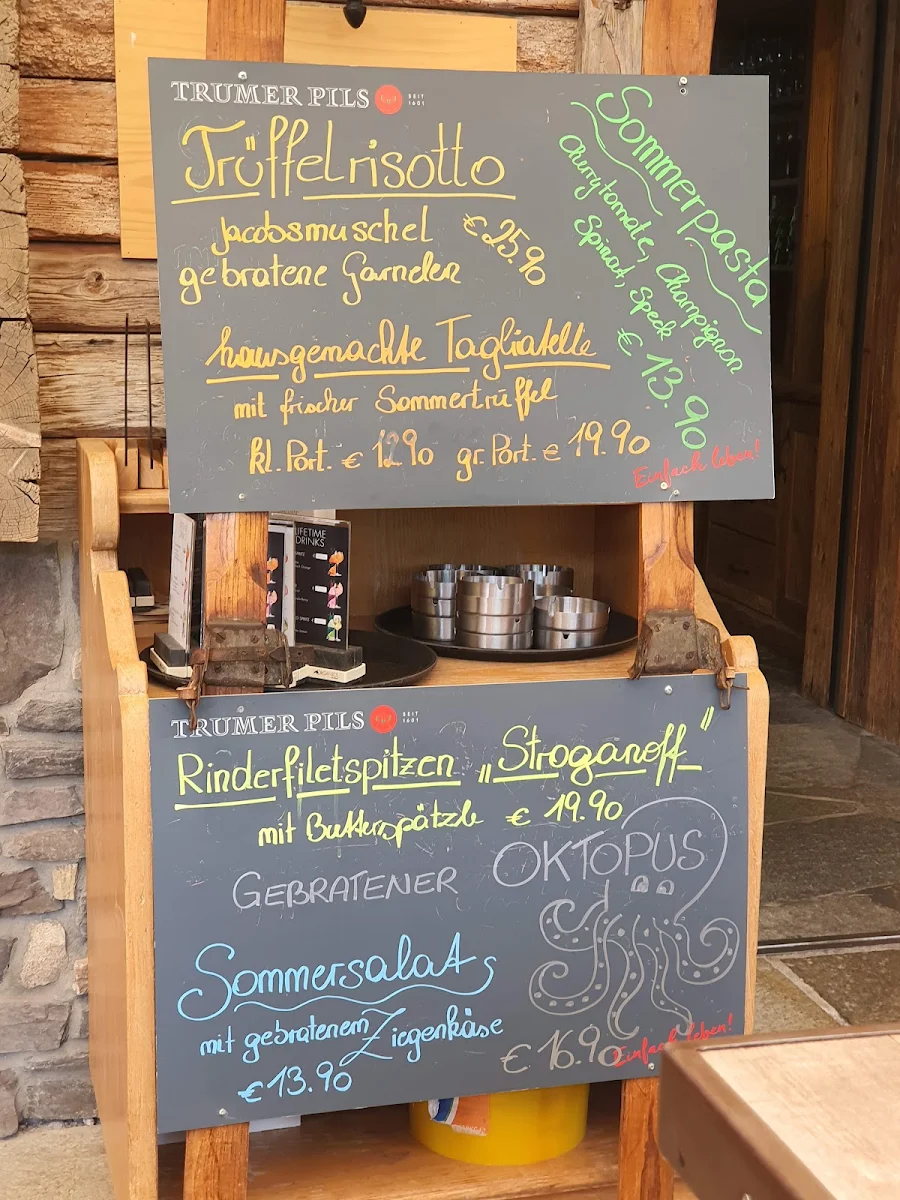 TRUMER PILS SEIT 1601
Trüffelrisotto
Jacobsmuschel € 25.90
gebratene Garnelen
Sommerpasta
Cherrytomate, Champignon
Spinat, Speck
€ 13.90
hausgemachte Tagliatelle
mit frischer Sommertrüffel
kl. Port. € 12.90 gr. Port. € 19.90
Einfach leben!
LIFETIME
DRINKS
TRUMER PILS SEIT 1601
Rinderfiletspitzen „Stroganoff"
mit Butterspätzle € 19.90
GEBRATENER OKTOPUS
€ 16.90
Sommersalat
mit gebratenem Ziegenkäse
€ 13.90
Einfach leben!